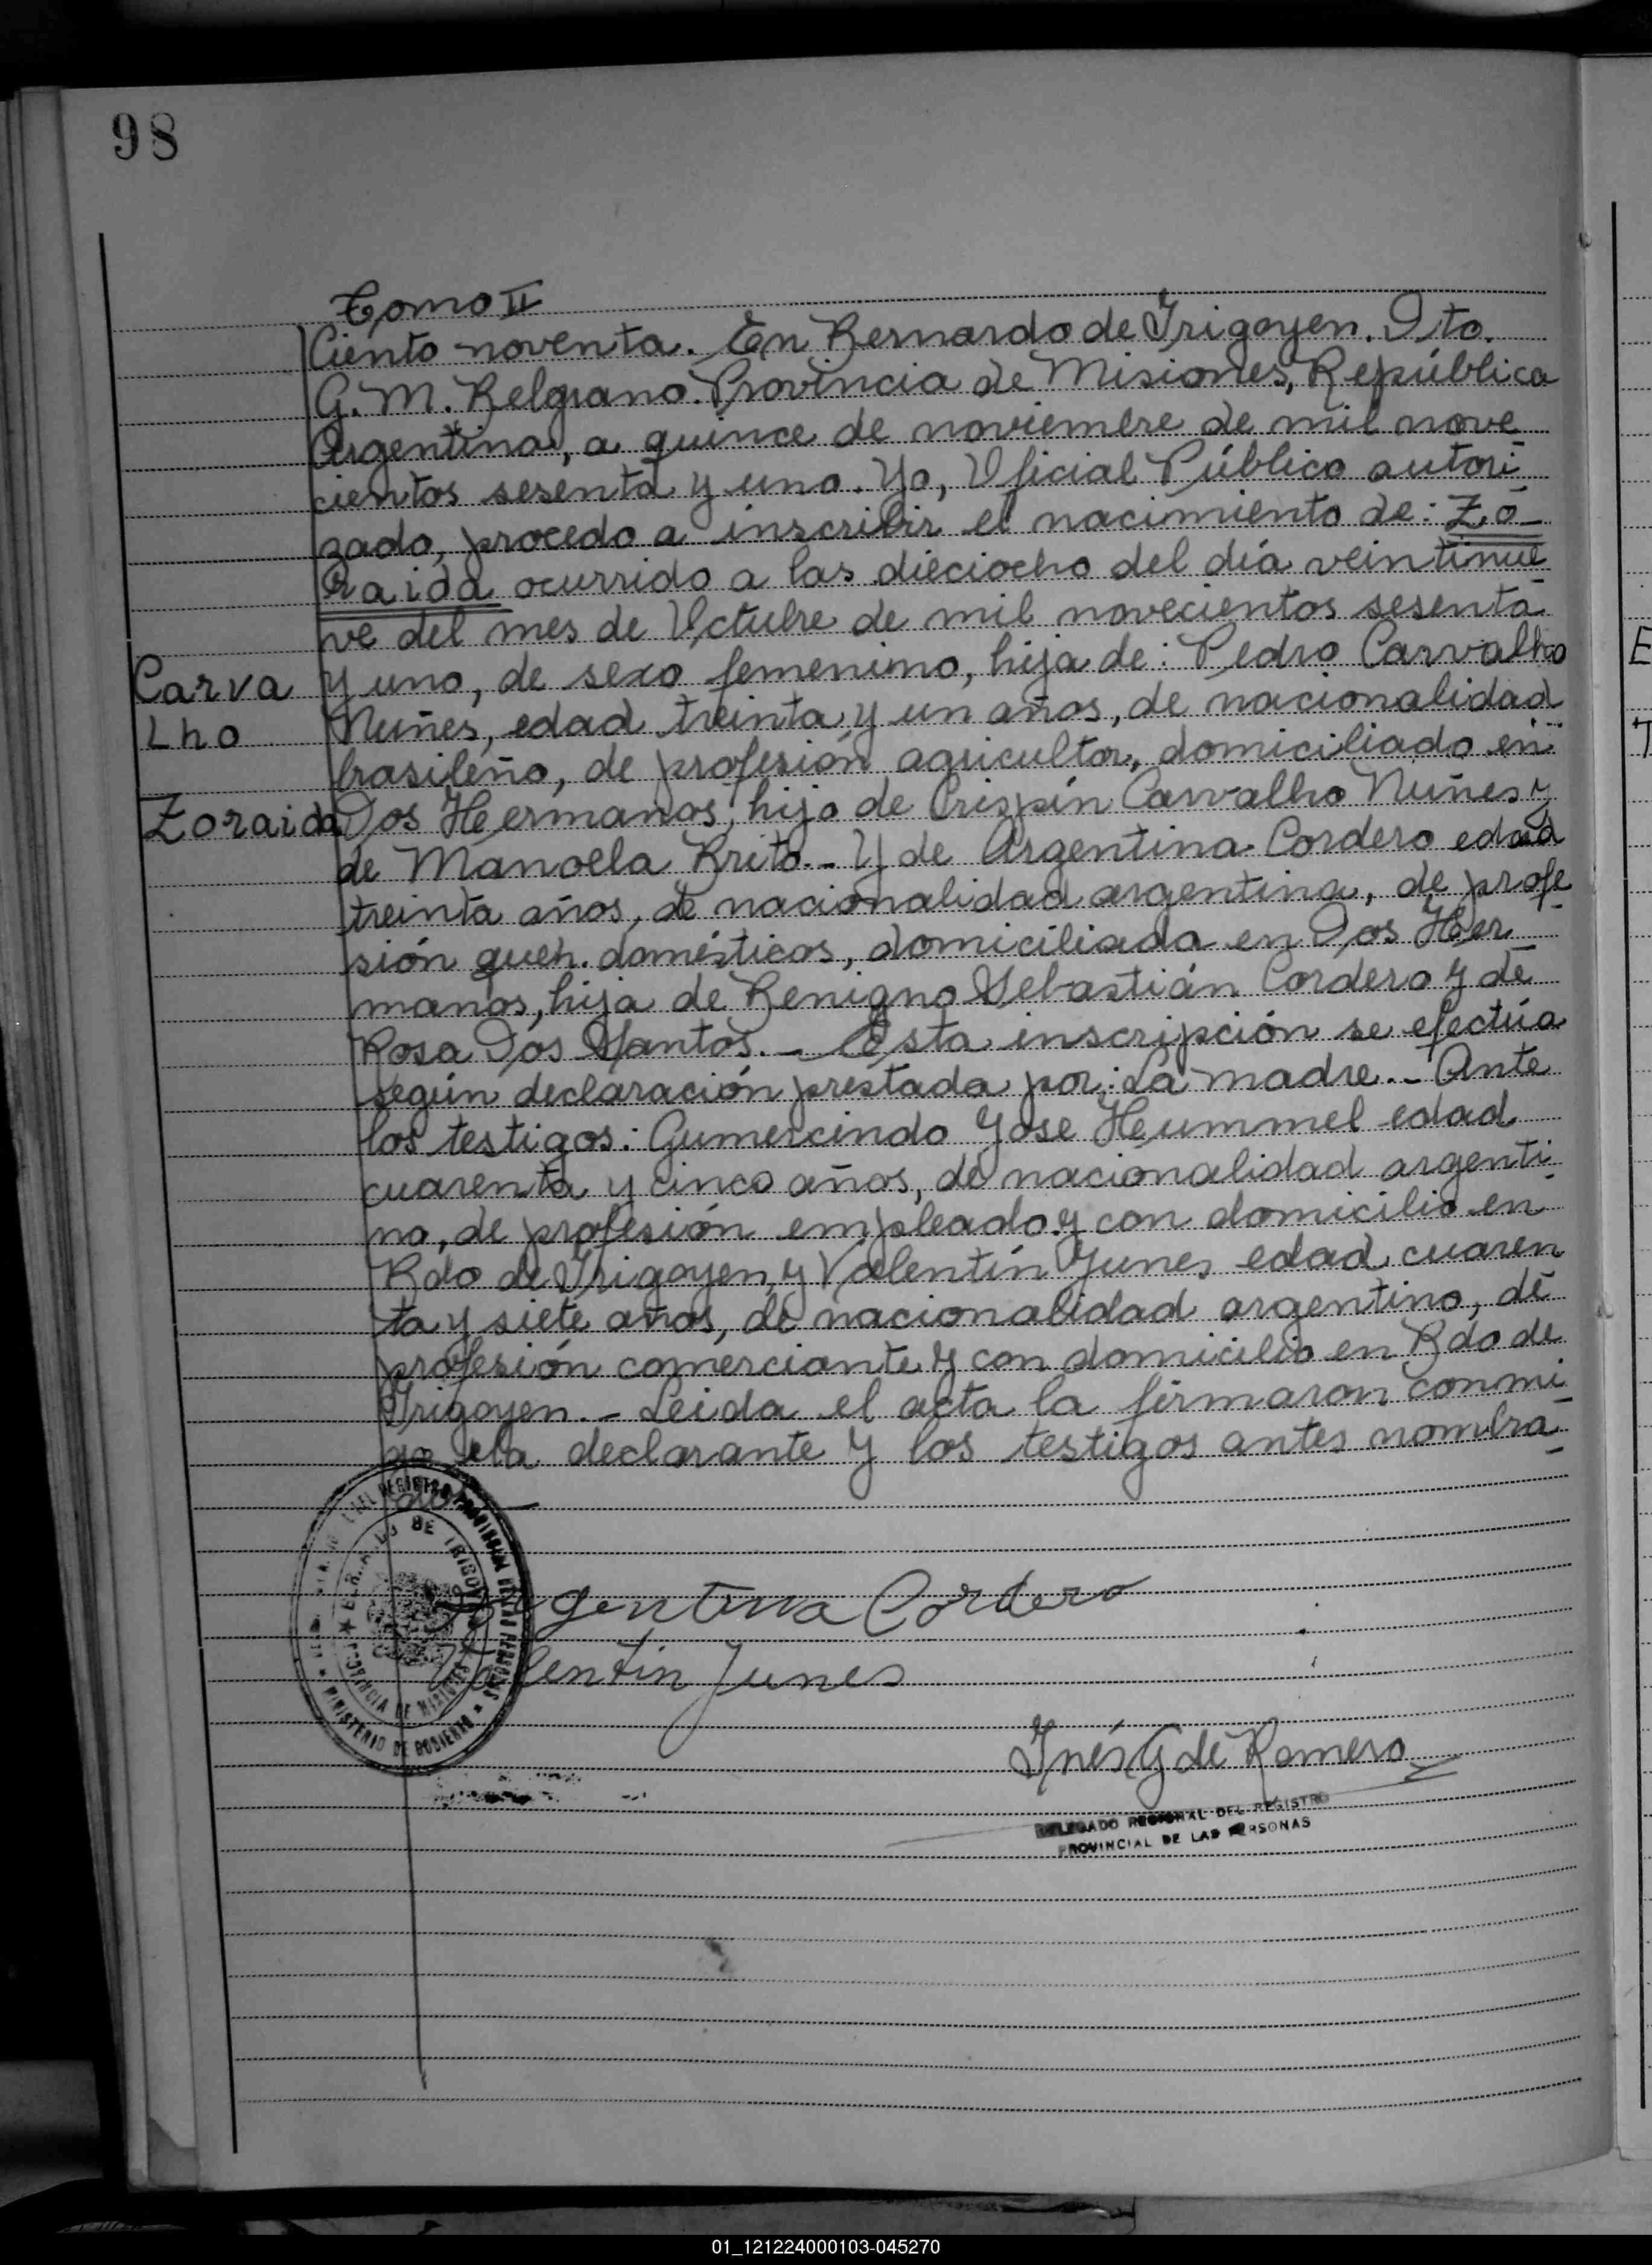 98
Tomo II
Ciento noventa. En Bernardo de Irigoyen. Dto.
G. M. Belgrano. Provincia de Misiones, República
Argentina, a quince de noviembre de mil nove
cientos sesenta y uno. Yo, Oficial Público autori
zado, procedo a inscribir el nacimiento de: Zo-
raida ocurrido a las dieciocho del día veintinue
ve del mes de Octubre de mil novecientos sesenta
Carva
lho
Zoraida
y uno, de sexo femenino, hija de: Pedro Carvalho
Nuñes, edad treinta y un años, de nacionalidad
brasileño, de profesión agricultor, domiciliado en
Dos Hermanos, hijo de Crispín Carvalho Nuñes y
de Manoela Brito.- Y de Argentina Cordero edad
treinta años, de nacionalidad argentina, de profe
sión queh. domésticos, domiciliada en Dos Her_
manos, hija de Benigno Sebastián Cordero y de
Rosa Dos Santos.- Esta inscripción se efectúa
según declaración prestada por: La madre.- Ante
los testigos: Gumercindo Jose Heummel edad
cuarenta y cinco años, de nacionalidad argenti
no, de profesión empleado y con domicilio en
Bdo de Irigoyen, y Valentín Junes edad cuaren
ta y siete años, de nacionalidad argentino, de
profesión comerciante y con domicilio en Bdo de
Irigoyen.- Leida el acta la firmaron conmi
go la declarante y los testigos antes nombra_
dos
REGISTRO PROVINCIAL DE LAS PERSONAS
MINISTERIO DE GOBIERNO
BERNARDO DE IRIGOYEN
PROVINCIA DE MISIONES
Argentina Cordero
Valentin Junes
Inés G de Romero
DELEGADO REGIONAL DEL REGISTRO
PROVINCIAL DE LAS PERSONAS
E
01_121224000103-045270